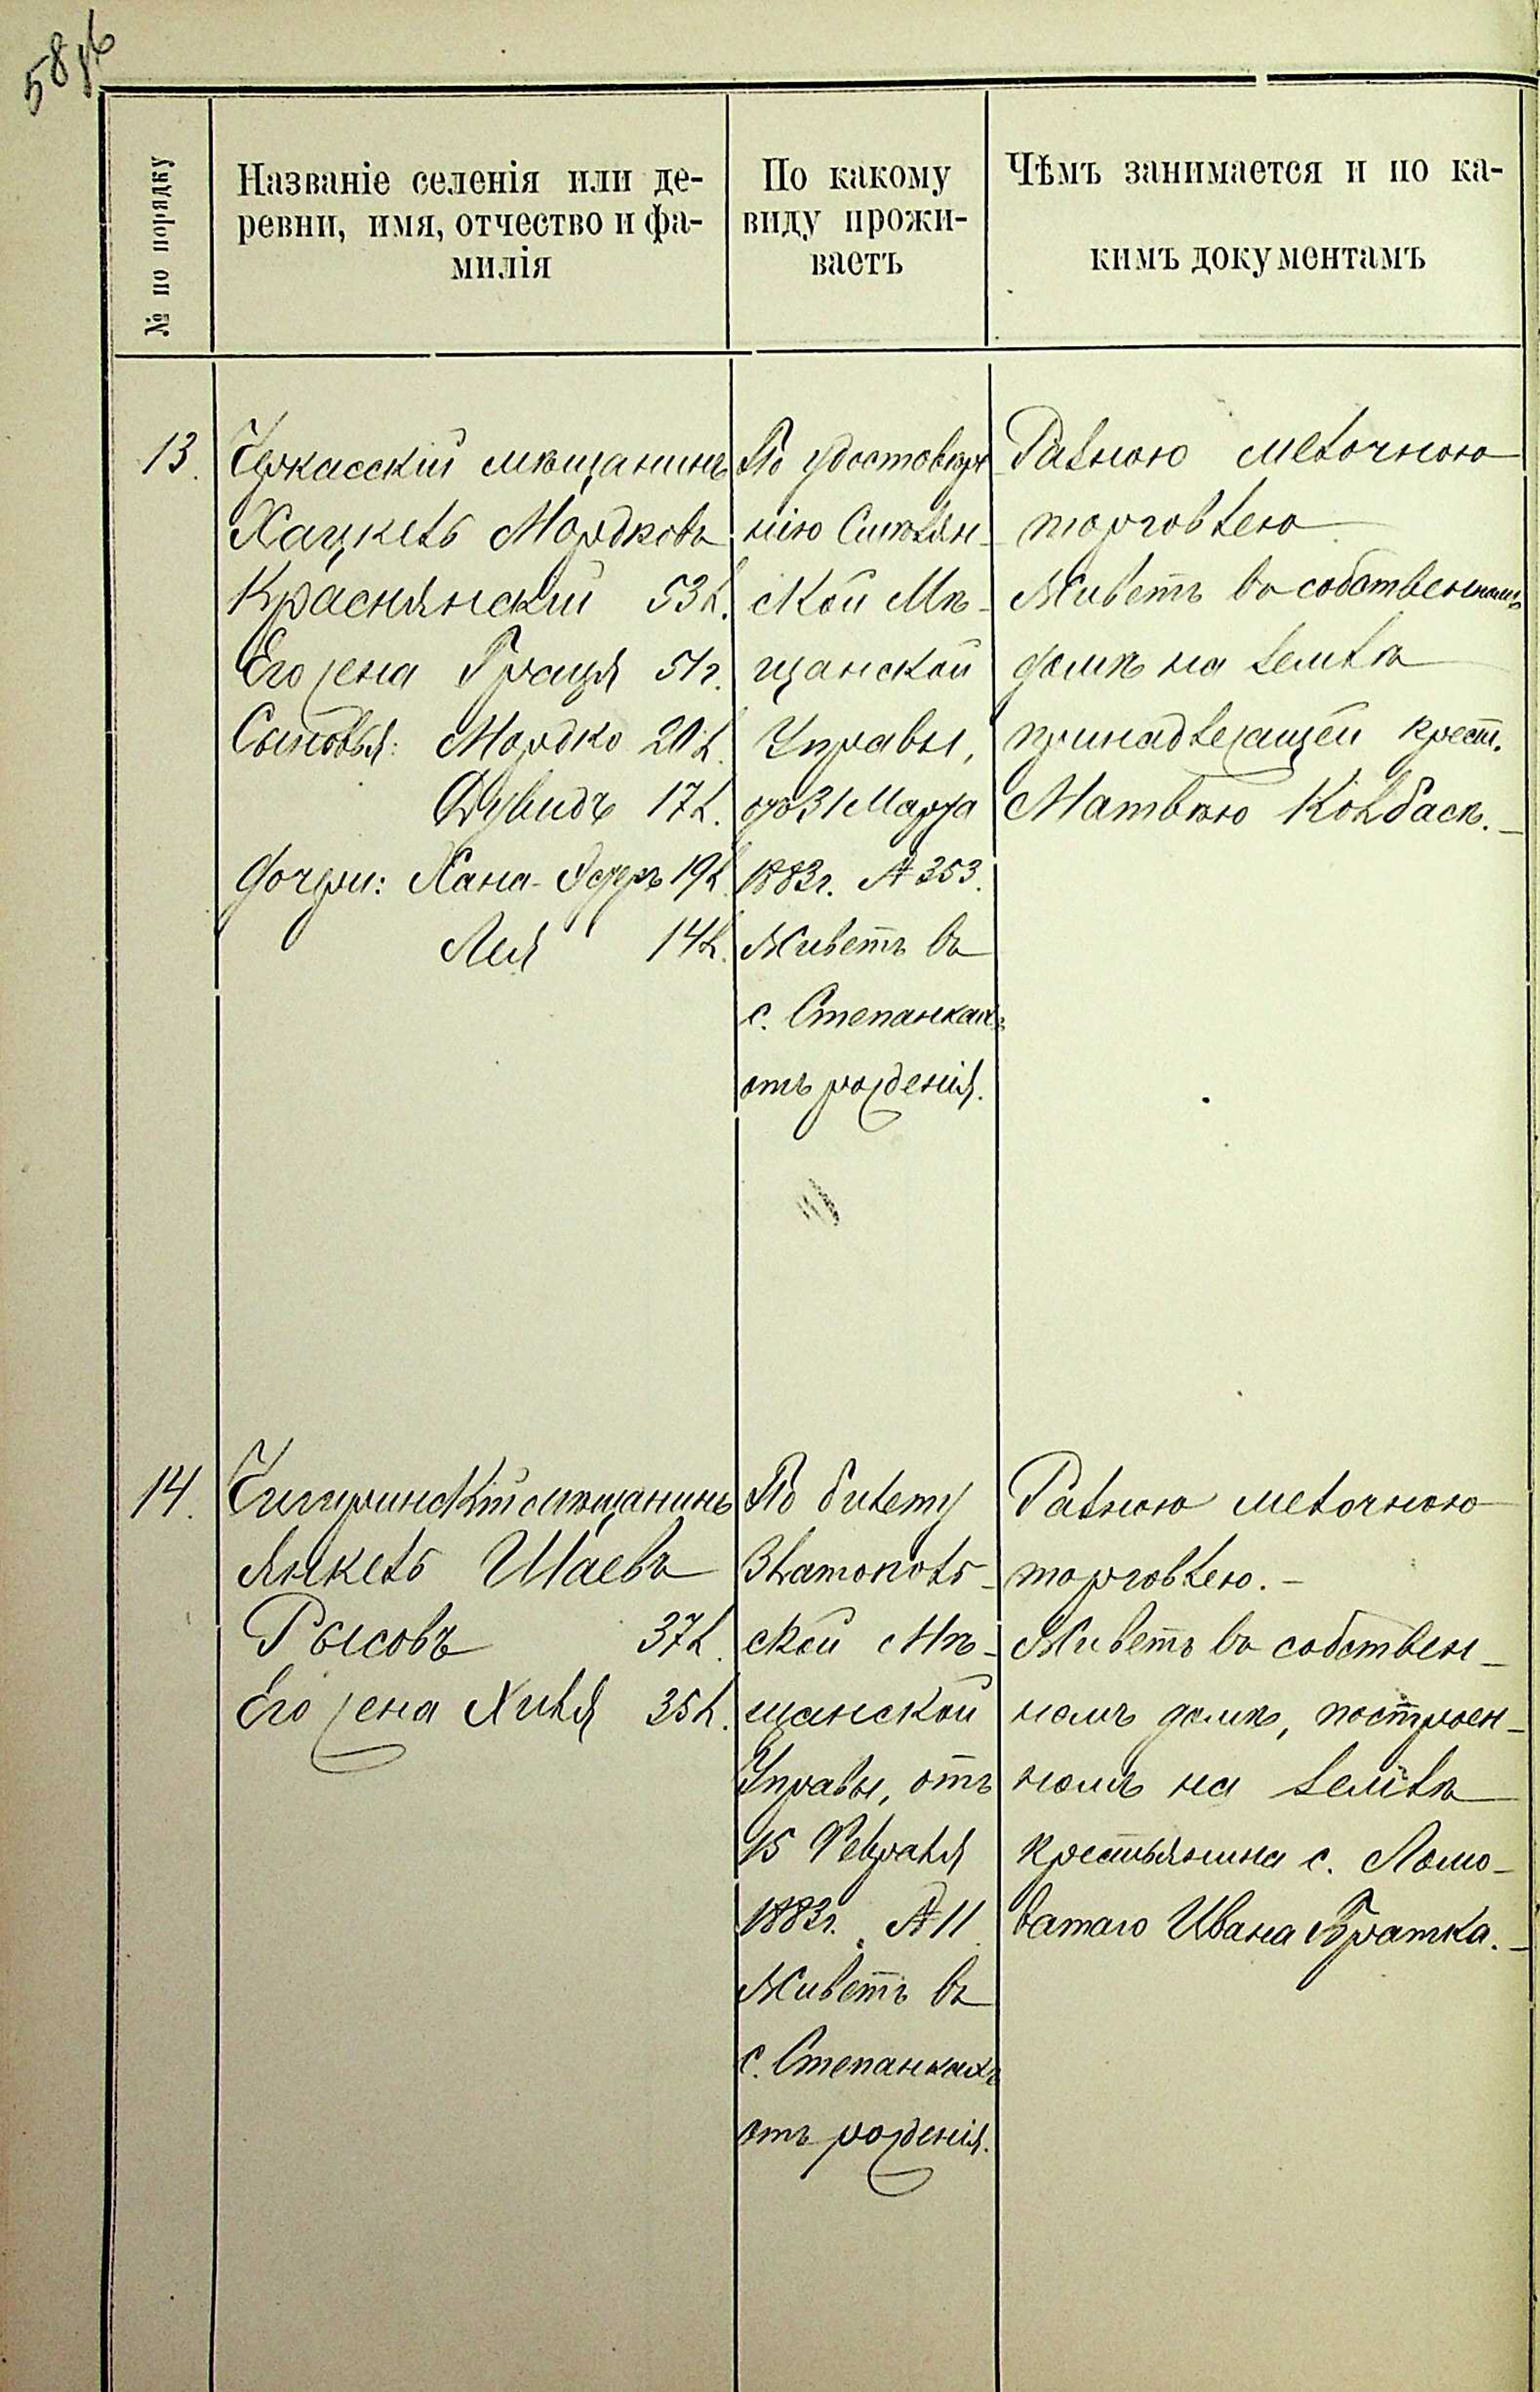 58 об
№ по порядку
Названіе селенія или де-
ревни, имя, отчество и фа-
милія
По какому
виду прожи-
ваетъ
Чѣмъ занимается и по ка-
кимъ документамъ
13.
Черкасскій мѣщанинъ
Хацкель Мордковъ
Краснянскій 53 л.
Его жена Граця 51 г.
Сыновья: Мордко 20 л.
Дувидъ 17 л.
Дочери: Хана-Эстеръ 19 л.
Лея 14 л.
По удостовѣре
нію Смѣлян-
ской Мѣ-
щанской
Управы,
до 31 Марта
1883 г. № 353.
Живетъ въ
с. Степанкахъ
отъ рожденія.
Разною мелочною
торговлею
Живетъ въ собственномъ
домѣ на землѣ
принадлежащей крест.
Матвѣю Ковбасѣ.-
14.
Чигиринскій мѣщанинъ
Янкель Шаевъ
Рысовъ 37 л.
Его жена Хивля 35 л.
По билету
Златополь-
ской Мѣ-
щанской
Управы, отъ
15 Февраля
1883 г. № 11
Живетъ въ
с. Степанкахъ
отъ рожденія.
Разною мелочною
торговлею.-
Живетъ въ собствен-
номъ домѣ, построен-
номъ на землѣ
крестьянина с. Ломо-
ватаго Ивана Братка.-